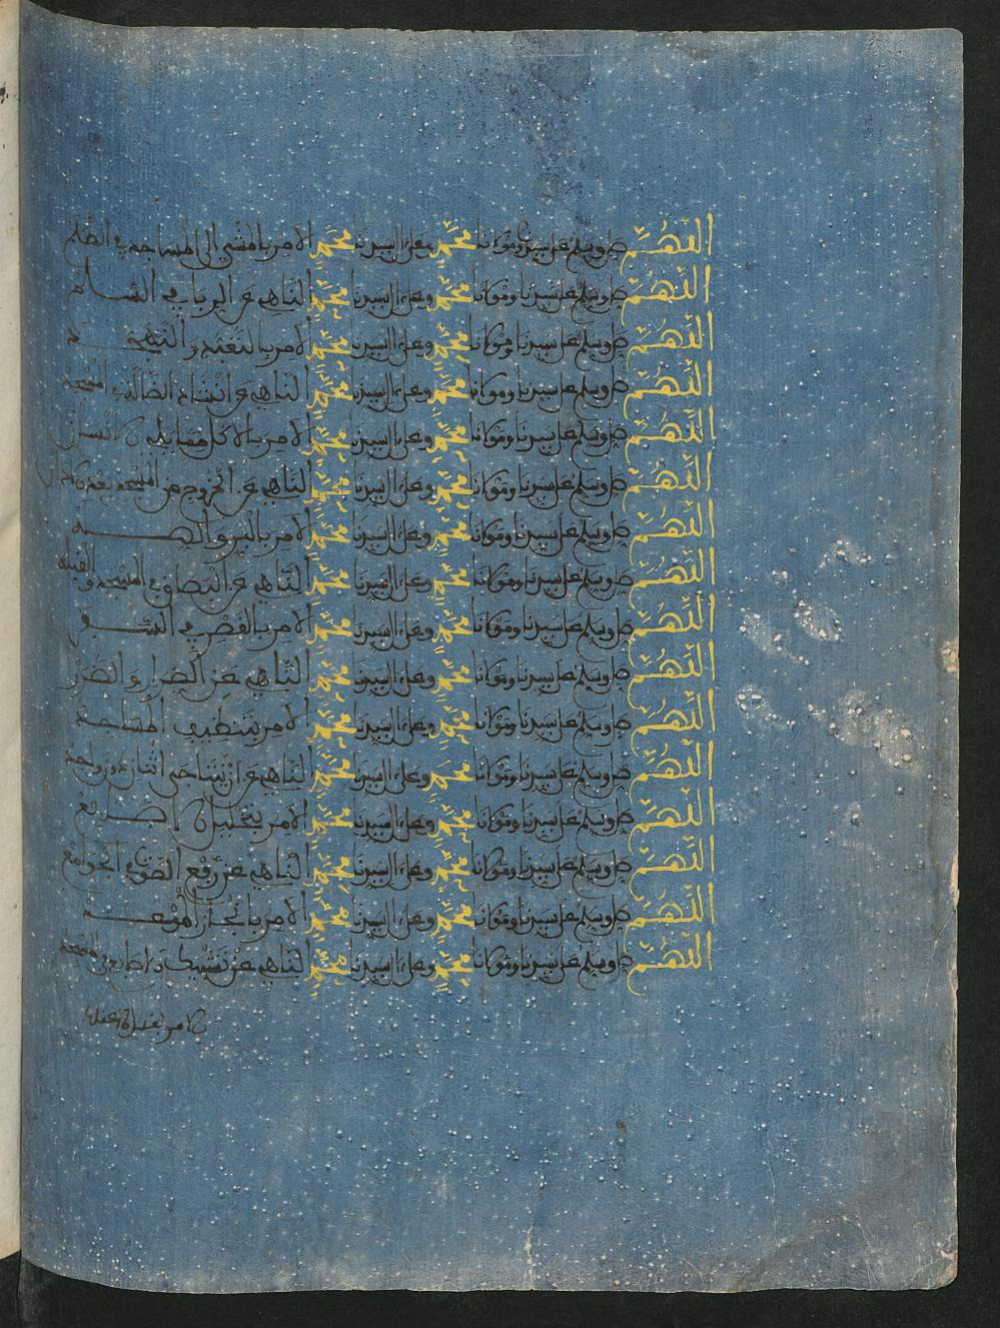 اللهم صل وسلم على سيدنا ومولانا محمد وعلى ءال سيدنا محمد الامر بالمشي الى المساجد في الظلم
اللهم صل وسلم على سيدنا ومولانا محمد وعلى ءال سيدنا محمد الناهي عن الربا في السلم
اللهم صل وسلم على سيدنا ومولانا محمد وعلى ءال سيدنا محمد الامر
اللهم صل وسلم على سيدنا ومولانا محمد وعلى ءال سيدنا محمد الناهي عن انشاد الضالة في المسجد
اللهم صل وسلم على سيدنا ومولانا محمد وعلى ءال سيدنا محمد الامر بالاكل مما يلي الانسان
اللهم صل وسلم على سيدنا ومولانا محمد وعلى ءال سيدنا محمد الناهي عن الخروج من المسجد بعد الاذان
اللهم صل وسلم على سيدنا ومولانا محمد وعلى ءال سيدنا محمد الامر بالبر والصلة
اللهم صل وسلم على سيدنا ومولانا محمد وعلى ءال سيدنا محمد الناهي عن البصاق في المسجد والقبلة
اللهم صل وسلم على سيدنا ومولانا محمد وعلى ءال سيدنا محمد الامر بالقصر في السفر
اللهم صل وسلم على سيدنا ومولانا محمد وعلى ءال سيدنا محمد الناهي عن الضرار والضرر
اللهم صل وسلم على سيدنا ومولانا محمد وعلى ءال سيدنا محمد الامر بتطييب المساجد
اللهم صل وسلم على سيدنا ومولانا محمد وعلى ءال سيدنا محمد الناهي عن ان يتناجى اثنان دون واحد
اللهم صل وسلم على سيدنا ومولانا محمد وعلى ءال سيدنا محمد الامر بتخليل الاصابع
اللهم صل وسلم على سيدنا ومولانا محمد وعلى ءال سيدنا محمد الناهي عن رفع الصوت في الجوامع
اللهم صل وسلم على سيدنا ومولانا محمد وعلى ءال سيدنا محمد الامر بانجاز الموعد
اللهم صل وسلم على سيدنا ومولانا محمد وعلى ءال سيدنا محمد الناهي عن تشبيك الاصابع في المسجد
الامر بغسل